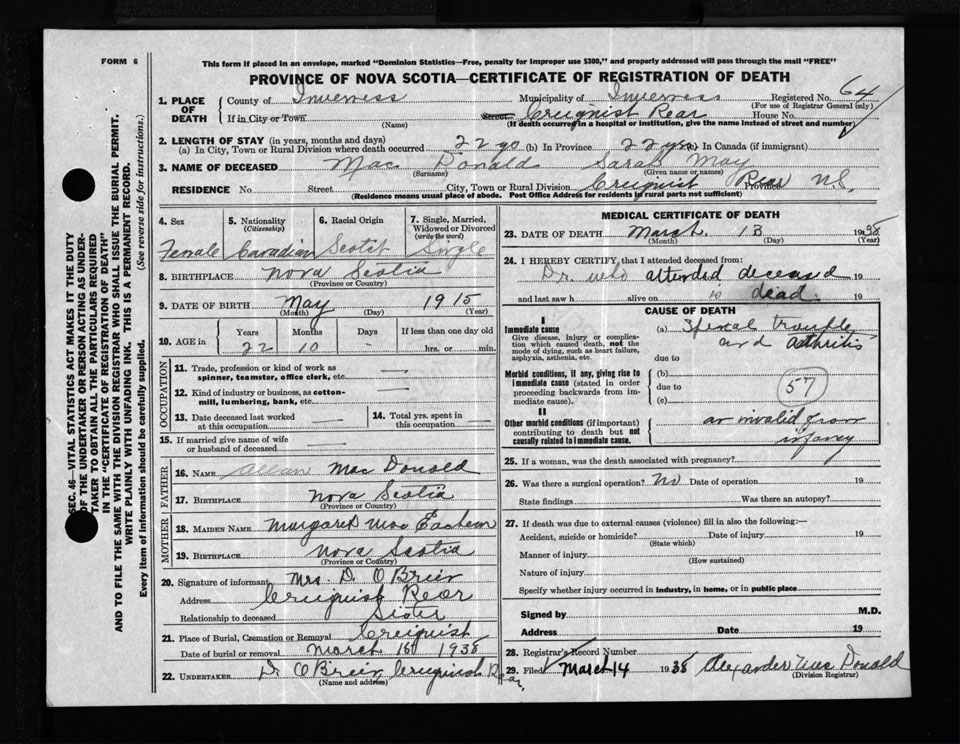 FORM 6
This form if placed in an envelope, marked "Dominion Statistics—Free, penalty for improper use $300," and properly addressed will pass through the mail "FREE"
PROVINCE OF NOVA SCOTIA—CERTIFICATE OF REGISTRATION OF DEATH
SEC. 46—VITAL STATISTICS ACT MAKES IT THE DUTY
OF THE UNDERTAKER OR PERSON ACTING AS UNDER-
TAKER TO OBTAIN ALL THE PARTICULARS REQUIRED
IN THE "CERTIFICATE OF REGISTRATION OF DEATH"
AND TO FILE THE SAME WITH THE DIVISION REGISTRAR WHO SHALL ISSUE THE BURIAL PERMIT.
WRITE PLAINLY WITH UNFADING INK. THIS IS A PERMANENT RECORD.
Every item of information should be carefully supplied. (See reverse side for instructions.)
1. PLACE OF DEATH
County of Inverness Municipality of Inverness Registered No. 64
(For use of Registrar General only)
If in City or Town (Name) Street Creignist Rear House No.
(If death occurred in a hospital or institution, give the name instead of street and number)
2. LENGTH OF STAY (in years, months and days)
(a) In City, Town or Rural Division where death occurred 22 yrs (b) In Province 22 yrs (c) In Canada (if immigrant)
3. NAME OF DECEASED Mac Donald Sarah May
(Surname) (Given name or names)
RESIDENCE No. Street City, Town or Rural Division Creignist Rear Province N.S.
(Residence means usual place of abode. Post Office Address for residents in rural parts not sufficient)
4. Sex
Female
5. Nationality (Citizenship)
Canadian
6. Racial Origin
Scotch
7. Single, Married, Widowed or Divorced (write the word)
Single
8. BIRTHPLACE Nova Scotia
(Province or Country)
9. DATE OF BIRTH May 1915
(Month) (Day) (Year)
10. AGE in
Years Months Days If less than one day old
22 10 - hrs. or min.
OCCUPATION
11. Trade, profession or kind of work as spinner, teamster, office clerk, etc. —
12. Kind of industry or business, as cotton-mill, lumbering, bank, etc. —
13. Date deceased last worked at this occupation —
14. Total yrs. spent in this occupation —
15. If married give name of wife or husband of deceased
FATHER
16. NAME Mac Donald
17. BIRTHPLACE Nova Scotia
(Province or Country)
MOTHER
18. MAIDEN NAME Margaret Mac Eachern
19. BIRTHPLACE Nova Scotia
(Province or Country)
20. Signature of informant Mrs. D. O'Brien
Address Creignist Rear
Relationship to deceased Sister
21. Place of Burial, Cremation or Removal Creignist
Date of burial or removal March 15 1938
22. UNDERTAKER D. O'Brien, Creignish Rear
(Name and address)
MEDICAL CERTIFICATE OF DEATH
23. DATE OF DEATH March 13 1938
(Month) (Day) (Year)
24. I HEREBY CERTIFY, that I attended deceased from:
Dr. who attended deceased 19
and last saw h alive on is dead. 19
CAUSE OF DEATH
I
Immediate cause
Give disease, injury or complication which caused death, not the mode of dying, such as heart failure, asphyxia, asthenia, etc.
(a) Spinal trouble and arthritis
due to
Morbid conditions, if any, giving rise to immediate cause (stated in order proceeding backwards from immediate cause).
(b)
due to
(c)
57
II
Other morbid conditions (if important) contributing to death but not causally related to immediate cause.
an invalid from infancy
25. If a woman, was the death associated with pregnancy?
26. Was there a surgical operation? No Date of operation 19
State findings Was there an autopsy?
27. If death was due to external causes (violence) fill in also the following:—
Accident, suicide or homicide? Date of injury 19
(State which)
Manner of injury
(How sustained)
Nature of injury
Specify whether injury occurred in industry, in home, or in public place
Signed by M.D.
Address Date 19
28. Registrar's Record Number
29. Filed March 14 1938 Alexander Mac Donald
(Division Registrar)